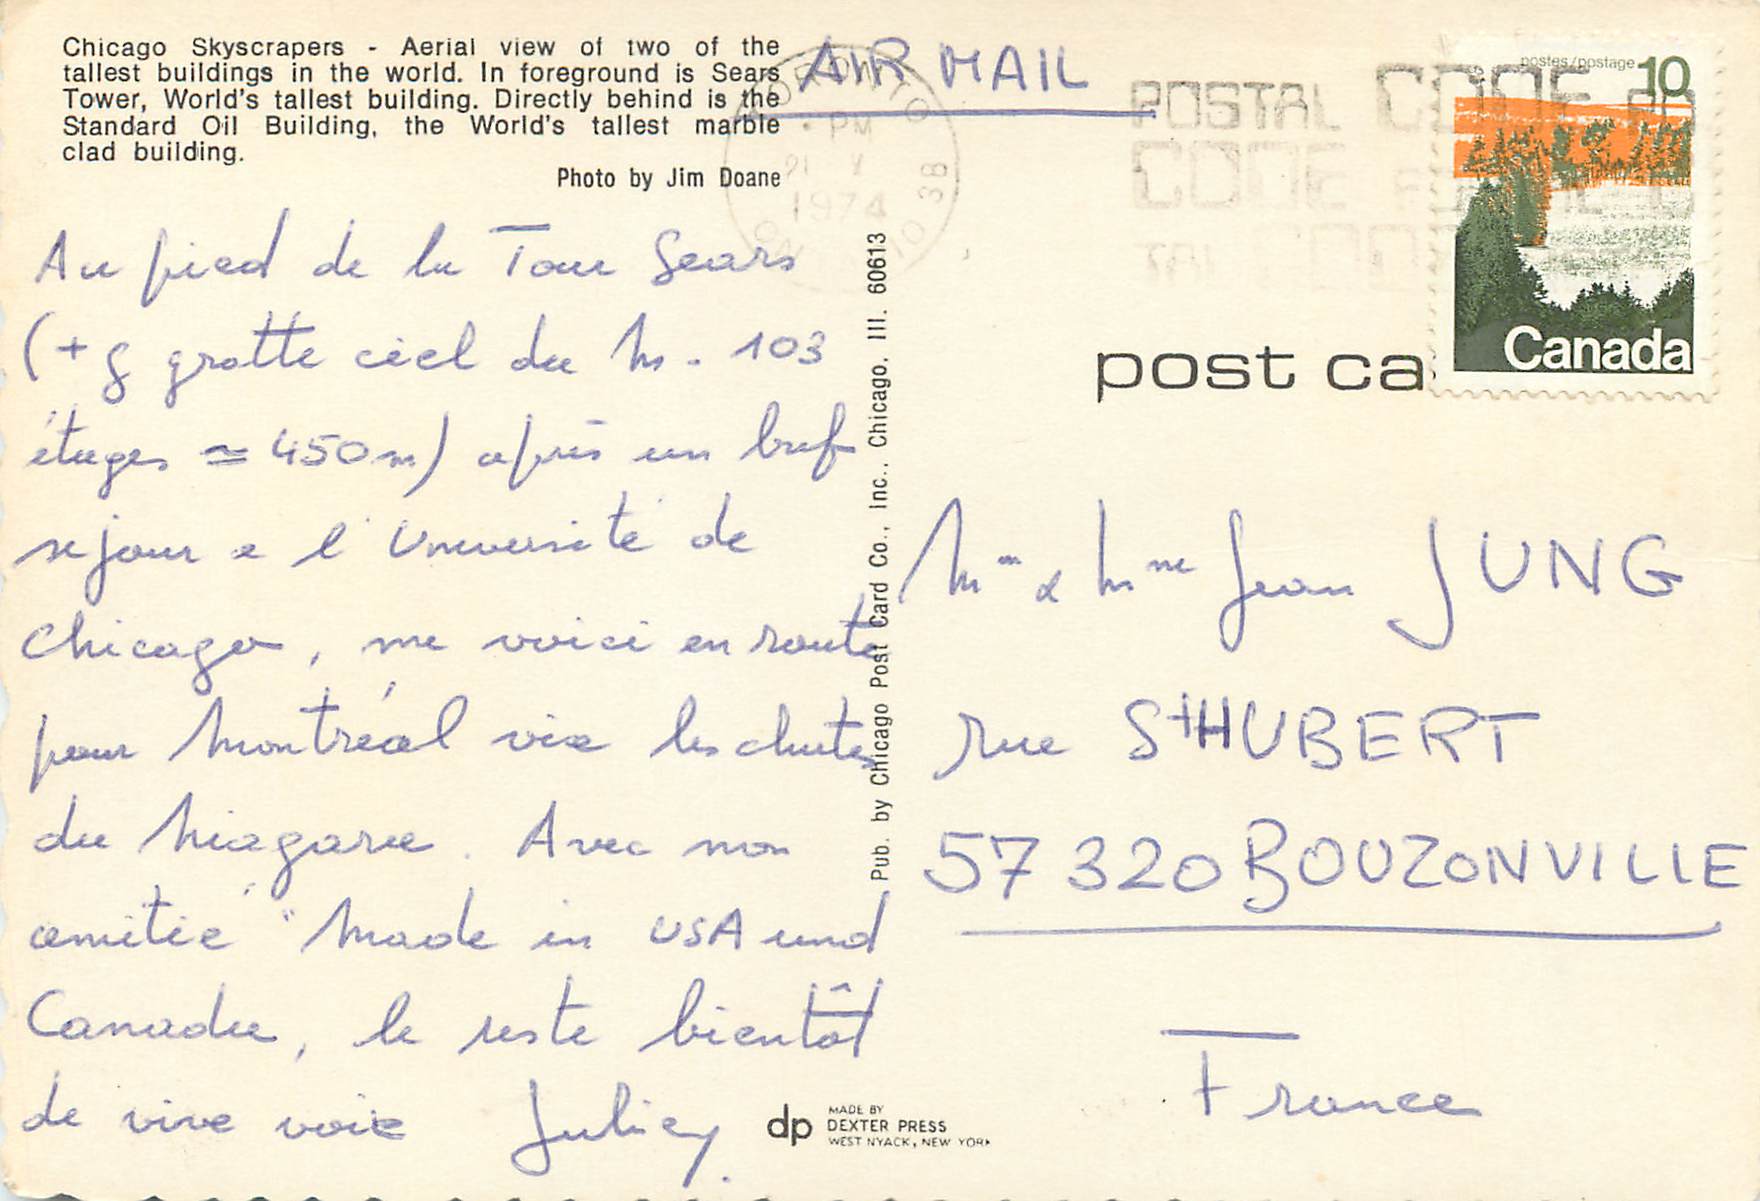 Chicago Skyscrapers - Aerial view of two of the
tallest buildings in the world. In foreground is Sears
Tower, World's tallest building. Directly behind is the
Standard Oil Building, the World's tallest marble
clad building.
Photo by Jim Doane
AIR MAIL
TORONTO
PM
21 V
1974
ONTARIO 3B
POSTAL CODE
CODE
postes/postage 10
Canada
post ca
Au pied de la Tour Sears
(+ g gratte ciel du M. 103
étages ≃ 450 m) après un bref
sejour a l'Université de
Chicago, me voici en route
pour Montréal via les chutes
du Niagara. Avec mon
amitié "Made in USA und
Canada, le reste bientôt
de vive voix Julien
Pub. by Chicago Post Card Co., Inc., Chicago, Ill. 60613
Mr & Mme Jean JUNG
rue St HUBERT
57 320 BOUZONVILLE
France
dp MADE BY
DEXTER PRESS
WEST NYACK, NEW YORK